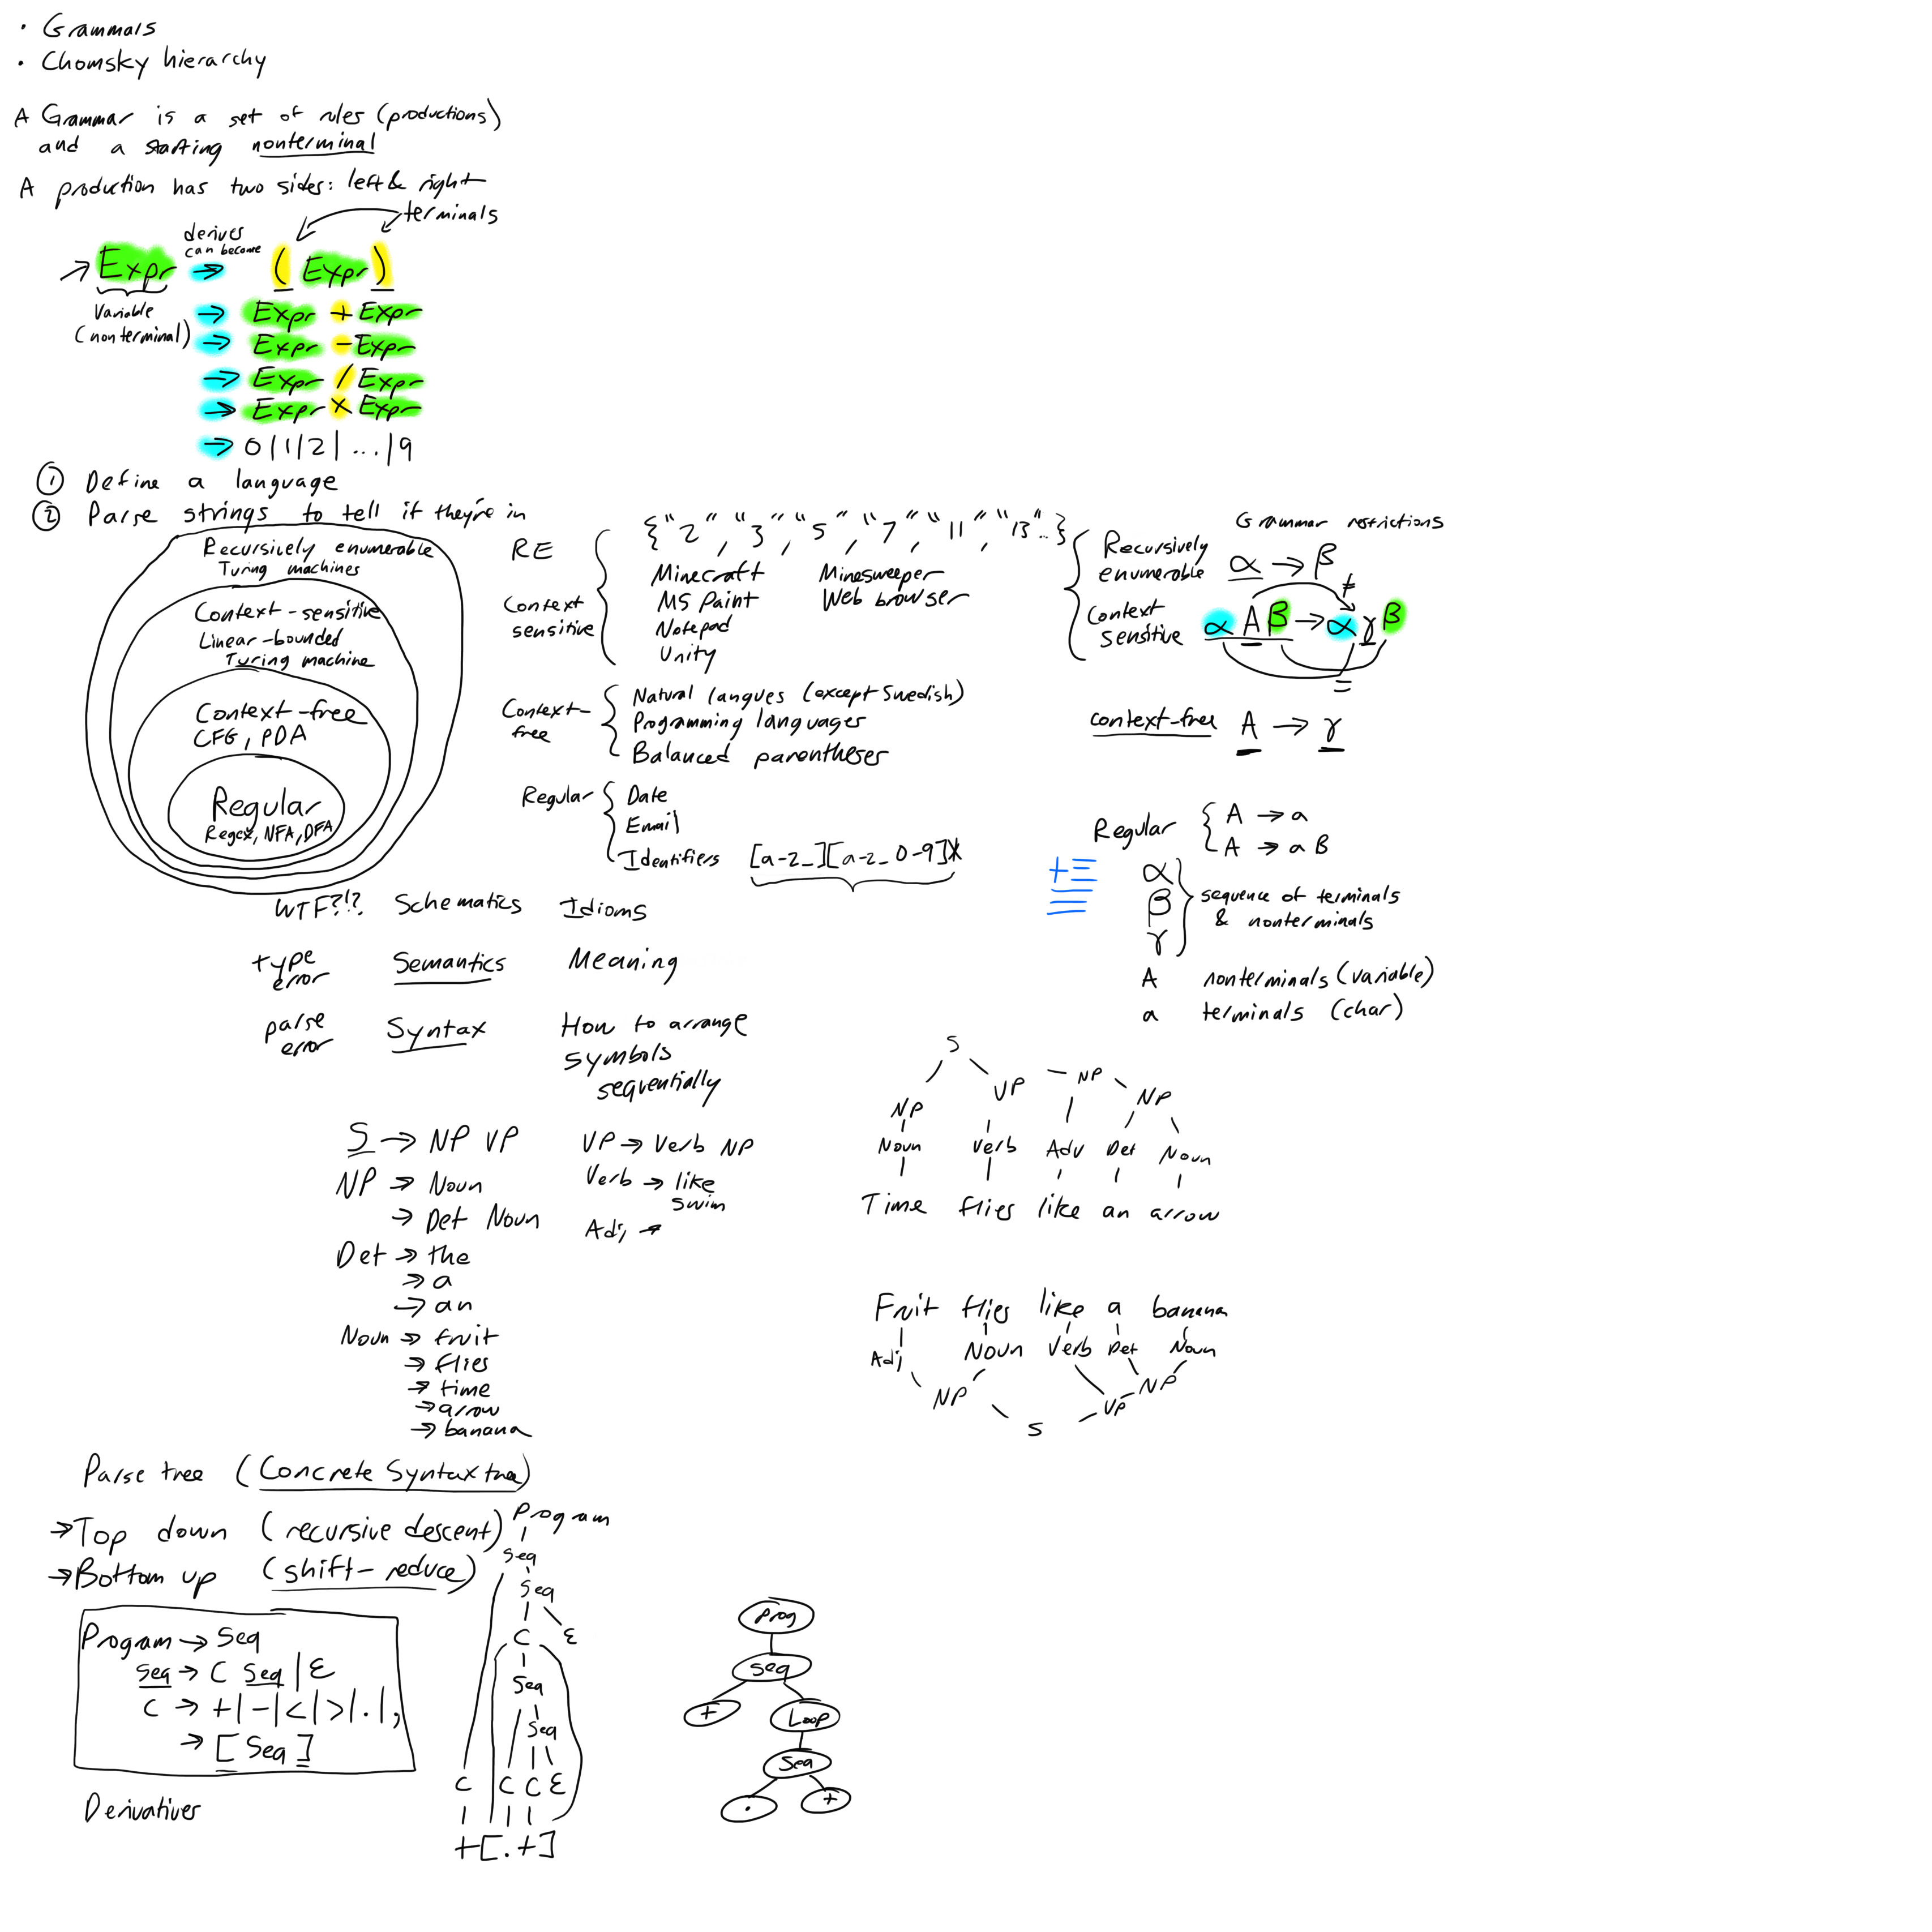 · Grammars
· Chomsky hierarchy
A Grammar is a set of rules (productions)
and a starting nonterminal
A production has two sides: left & right
terminals
derives
can become
→ Expr → ( Expr )
Variable
(nonterminal)
→ Expr + Expr
→ Expr - Expr
→ Expr / Expr
→ Expr × Expr
→ 0|1|2|...|9
① Define a language
② Parse strings to tell if they're in
Recursively enumerable
Turing machines
Context-sensitive
Linear-bounded
Turing machine
Context-free
CFG, PDA
Regular
Regex, NFA, DFA
RE
Context
sensitive
{"2", "3", "5", "7", "11", "13"...}
Minecraft Minesweeper
MS Paint Web browser
Notepad
Unity
Context-
free
Natural langues (except Swedish)
Programming languages
Balanced parentheses
Regular
Date
Email
Identifiers [a-z_][a-z_0-9]*
Grammar restrictions
Recursively
enumerable α → β
≠
Context
sensitive α A β → α γ β
=
context-free A → γ
Regular { A → a
A → a B
+≡
α
β
γ
sequence of terminals
& nonterminals
A nonterminals (variable)
a terminals (char)
WTF?!? Schematics Idioms
type
error Semantics Meaning
parse
error Syntax How to arrange
symbols
sequentially
S → NP VP
NP → Noun
→ Det Noun
Det → the
→ a
→ an
Noun → fruit
→ flies
→ time
→ arrow
→ banana
VP → Verb NP
Verb → like
swim
Adj →
S
NP VP NP NP
Noun Verb Adv Det Noun
Time flies like an arrow
Fruit flies like a banana
Adj Noun Verb Det Noun
NP VP NP
S
Parse tree (Concrete Syntax tree)
→ Top down (recursive descent)
→ Bottom up (shift-reduce)
Progam → Seq
Seq → C Seq | ε
C → +|-|<|>|.|,
→ [ Seq ]
Derivatives
Program
Seq
Seq
C ε
Seq
Seq
C C C ε
+[.+]
Prog
Seq
+ Loop
Seq
. +